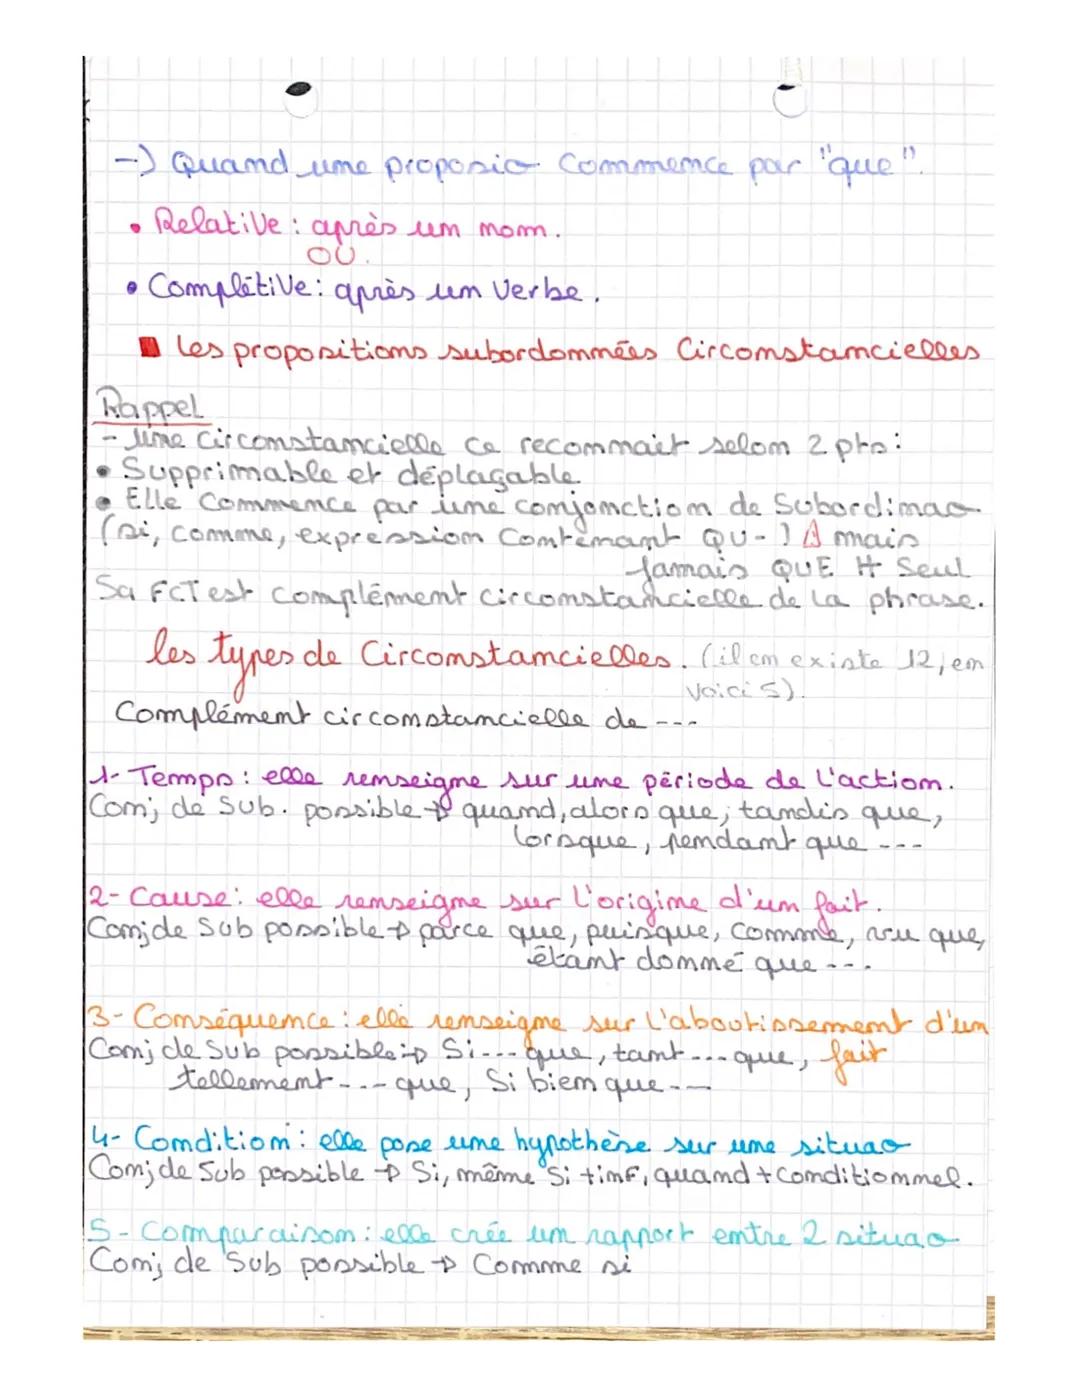 -> Quand une proposio commence par "que".
• Relative : après un nom.
OU.
• Complétive : après un verbe.
■ Les propositions subordonnées Circonstancielles
Rappel
- Une circonstancielle ce reconnait selon 2 pts :
• Supprimable et déplaçable
• Elle commence par une conjonction de Subordinao
(si, comme, expression contenant QU-) ⚠ mais
Jamais QUE tt Seul
Sa FCT est complément circonstancielle de la phrase.
les types de Circonstancielles. (il en existe 12, en
voici 5).
Complément circonstancielle de ---
1- Temps : elle renseigne sur une période de l'action.
Conj de Sub. possible -> quand, alors que, tandis que,
lorsque, pendant que ---
2- Cause : elle renseigne sur l'origine d'un fait.
Conj de Sub possible -> parce que, puisque, comme, vu que,
étant donné que ---.
3- Conséquence : elle renseigne sur l'aboutissement d'un
Conj de Sub possible : -> Si --- que, tant --- que, fait
tellement --- que, Si bien que ---
4- Condition : elle pose une hypothèse sur une situao
Conj de Sub possible -> Si, même Si + imf, quand + conditionnel.
5- Comparaison : elle crée un rapport entre 2 situao
Conj de Sub possible -> Comme si